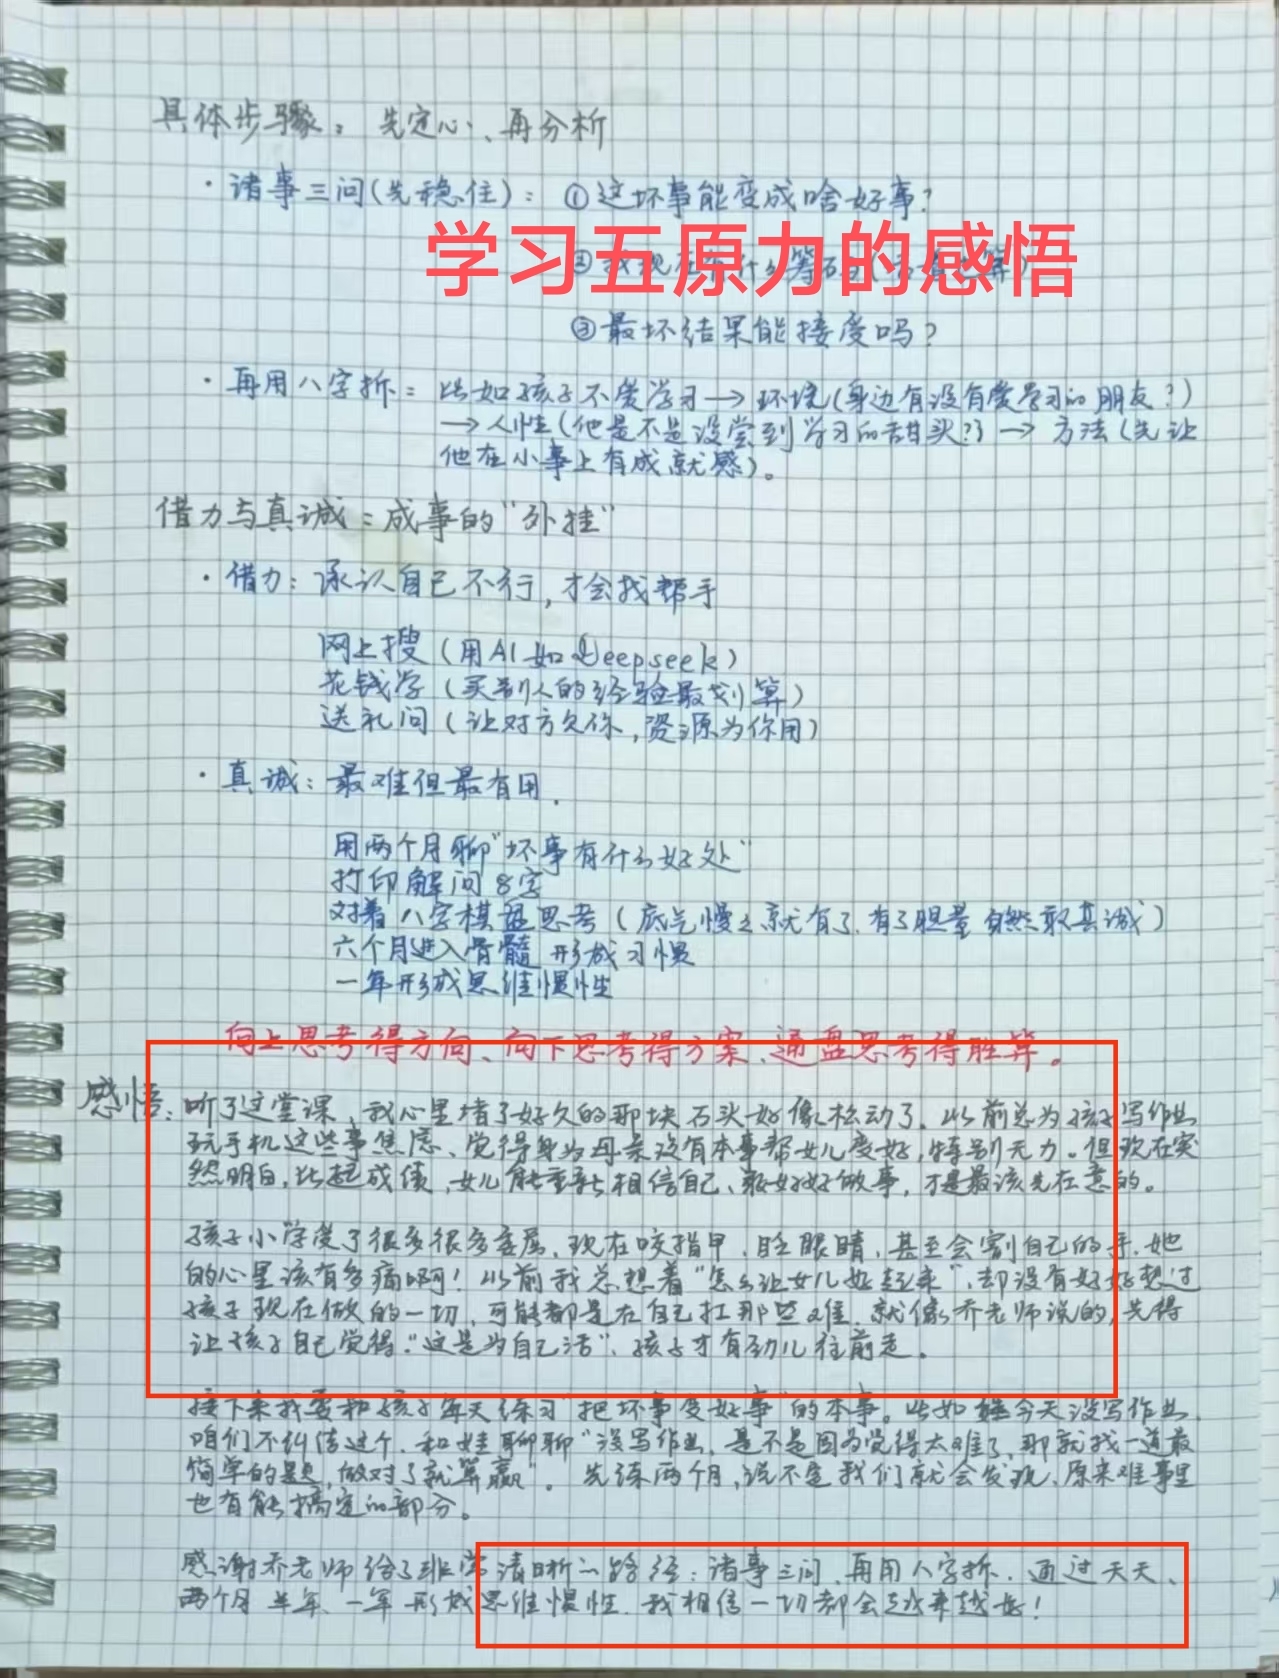 具体步骤：先定心、再分析
·诸事三问(先稳住)：①这坏事能变成啥好事？
学习五原力的感悟
③最坏结果能接受吗？
·再用八字拆：比如孩子不爱学习→环境(身边有没有爱学习的朋友？)
→人性(他是不是没尝到学习的甜头？)→方法(先让
他在小事上有成就感)。
借力与真诚：成事的"外挂"
·借力：承认自己不行，才会找帮手
网上搜(用AI如Deepseek)
花钱学(买别人的经验最划算)
送礼问(让对方欠你，资源为你用)
·真诚：最难但最有用.
用两个月聊"坏事有什么好处"
打印解问8字
对着八字棋盘思考(底气慢慢就有了.有了胆量自然敢真诚)
六个月进入骨髓形成习惯
一年形成思维惯性
向上思考得方向、向下思考得方案、通盘思考得胜算。
感悟：听了这堂课，我心里堵了好久的那块石头好像松动了。以前总为孩子写作业
玩手机这些事焦虑、觉得身为母亲没有本事帮女儿变好，特别无力。但现在突
然明白，比起成绩，女儿能重新相信自己、敢好好做事，才是最该先在意的。
孩子小学受了很多很多委屈，现在咬指甲、眨眼睛，甚至会割自己的手，她
的心里该有多痛啊！以前我总想着"怎么让女儿好起来"，却没有好好想过
孩子现在做的一切，可能都是在自己扛那些难．就像乔老师说的，先得
让孩子自己觉得"这是为自己活"，孩子才有劲儿往前走。
接下来我要和孩子每天练习"把坏事变好事"的本事。比如娃今天没写作业、
咱们不纠结这个，和娃聊聊"没写作业，是不是因为觉得太难了，那就找一道最
简单的题，做对了就算赢"。先练两个月，说不定我们就会发现，原来难事里
也有能搞定的部分。
感谢乔老师给了非常清晰的路径：诸事三问、再用八字拆．通过天天、
两个月半年、一年形成思维惯性．我相信一切都会越来越好！